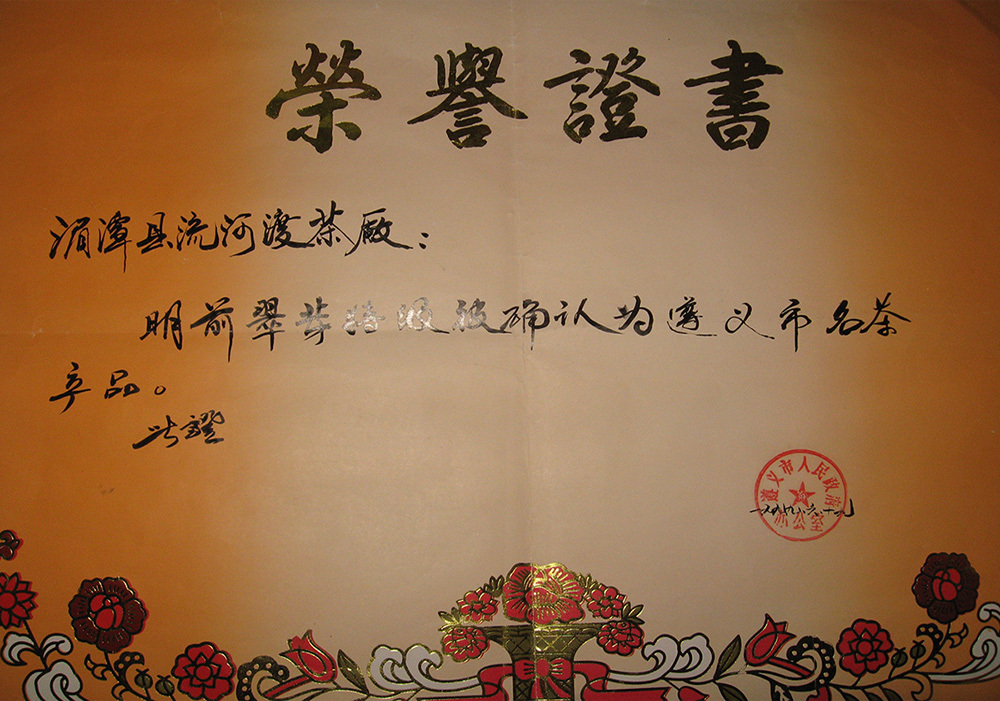 榮譽證書
湄潭县流河渡茶厰：
明前翠芽特级被确认为遵义市名茶
产品。
此證
遵义市人民政府
办公室